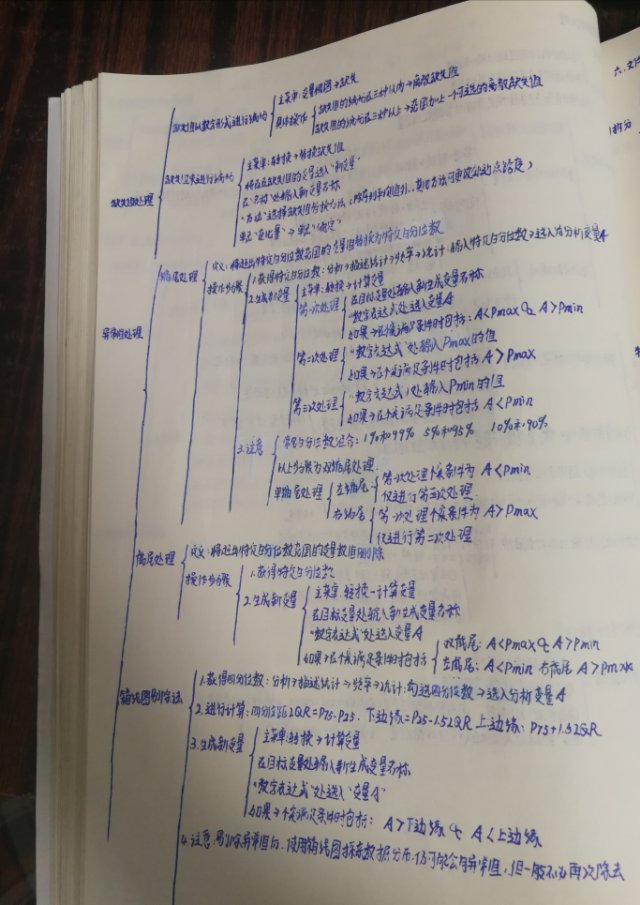 缺失值以数字形式进行编码
主菜单:变量视图→缺失
具体操作
缺失值的编码在三种以内→离散缺失值
缺失值的编码在三种以上→范围加上一个可选的离散缺失值
缺失值处理
主菜单:转换→替换缺失值
将存在缺失值的变量选入"新变量"
在"名称"处输入新变量名称
单击"变化量"→单击"确定"
异常值处理
缩尾处理
定义:将超出特定百分位数范围的变量值替换为特定百分位数
操作步骤
1.获得特定百分位数:分析→描述统计→频率→统计:输入特定百分位数→选入待分析变量A
2.生成新变量
主菜单:转换→计算变量
第一次处理
在目标变量处输入新生成变量名称
"数字表达式"处选入变量A
如果→在个案满足条件时包括:A<Pmax & A>Pmin
第二次处理
"数字表达式"处输入Pmax的值
如果→在个案满足条件时包括A>Pmax
第三次处理
"数字表达式"处输入Pmin的值
如果→在个案满足条件时包括A<Pmin
3.注意
常用百分位数组合:1%和99% 5%和95% 10%和90%
以上步骤为双缩尾处理.
单缩尾处理
左缩尾
第一次处理个案条件为 A<Pmin
仅进行第三次处理
右缩尾
第一次处理个案条件为 A>Pmax
仅进行第二次处理
截尾处理
定义:将超出特定百分位数范围的变量数值删除
操作步骤
1.获得特定百分位数
2.生成新变量
主菜单:转换→计算变量
在目标变量处输入新生成变量名称
"数字表达式"处选入变量A
如果→在个案满足条件时包括
双截尾:A<Pmax & A>Pmin
左截尾:A<Pmin 右截尾 A>Pmax
箱线图剔除法
1.获得四分位数:分析→描述统计→频率→统计:勾选四分位数→选入分析变量A
2.进行计算:四分位距IQR=P75-P25. 下边缘=P25-1.5IQR 上边缘:P75+1.5IQR
3.生成新变量
主菜单:转换→计算变量
在目标变量处输入新生成变量名称
"数字表达式"处选入"变量A"
如果→个案满足条件时包括: A>下边缘 & A<上边缘
4.注意:剔除异常值后,使用箱线图探索数据分布,仍可能会有异常值,但一般不必再次除去
六.
拆分